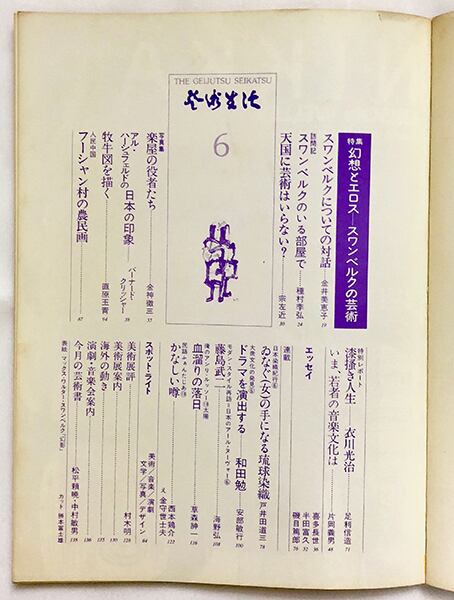 THE GEIJUTSU SEIKATSU
芸術生活
6
特集 幻想とエロス—スワンベルクの芸術
スワンベルクについての対話 金井美恵子 19
訪問記
スワンベルクのいる部屋で 種村季弘 24
天国に芸術はいらない? 宗左近 30
写真集
楽屋の役者たち 金神徹三 55
アル・ハーシュフェルドの日本の印象 バーナード・クリッシャー 39
牧牛図を描く 直原玉青 94
人民中国
フーシャン村の農民画 87
特別レポート
漆掻き人生 衣川光治 足利信造 71
いま、若者の音楽文化は 片岡義男 48
エッセイ
喜多長世 36
半田富久 52
磯目篤郎 76
連載
日本染織紀行⑥
ゐなぐ(女)の手になる琉球染織 戸井田道三 78
大衆文化の発見⑥
ドラマを演出する 和田勉 安部敏行 100
モダン・スタイル再訪=日本のアール・ヌーヴォー⑥
藤島武二 海野弘 108
夜のアリ・ルッソー⑱太陽
血溜りの落日 草森紳一 116
民話ふぁんたじあ⑱
かなしい噂 西本鶏介
え 金守世士夫 122
スポット・ライト
美術/音楽/演劇
文学/写真/デザイン 64
美術展評 村木明 128
美術展案内 130
海外の動き 135
演劇・音楽会案内 136
今月の芸術書 松平頼暁、中村敏男 138
表紙 マックス・ワルター・スワンベルク「幻影」
カット 勝本冨士雄